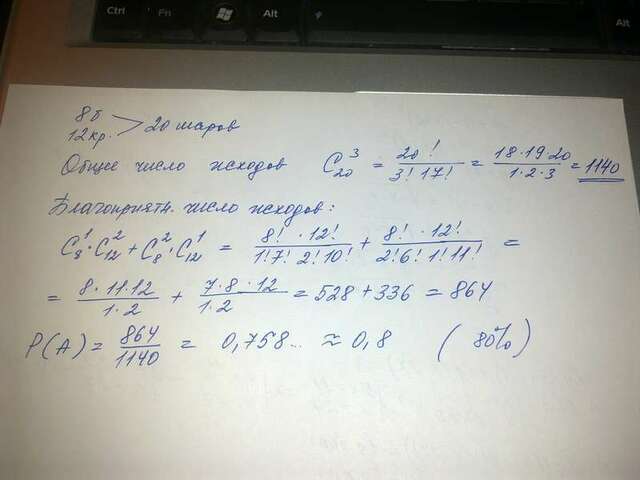 Ctrl Fn Alt Alt
8б
12кр. > 20 шаров
Общее число исходов C₂₀³ = 20!/(3! 17!) = 18·19·20/(1·2·3) = 1140
Благоприятн. число исходов:
C₈¹·C₁₂² + C₈²·C₁₂¹ = 8!·12!/(1!7! 2!10!) + 8!·12!/(2!6! 1!11!) =
= 8·11·12/(1·2) + 7·8·12/(1·2) = 528 + 336 = 864
P(A) = 864/1140 = 0,758... ≈ 0,8 (80%)